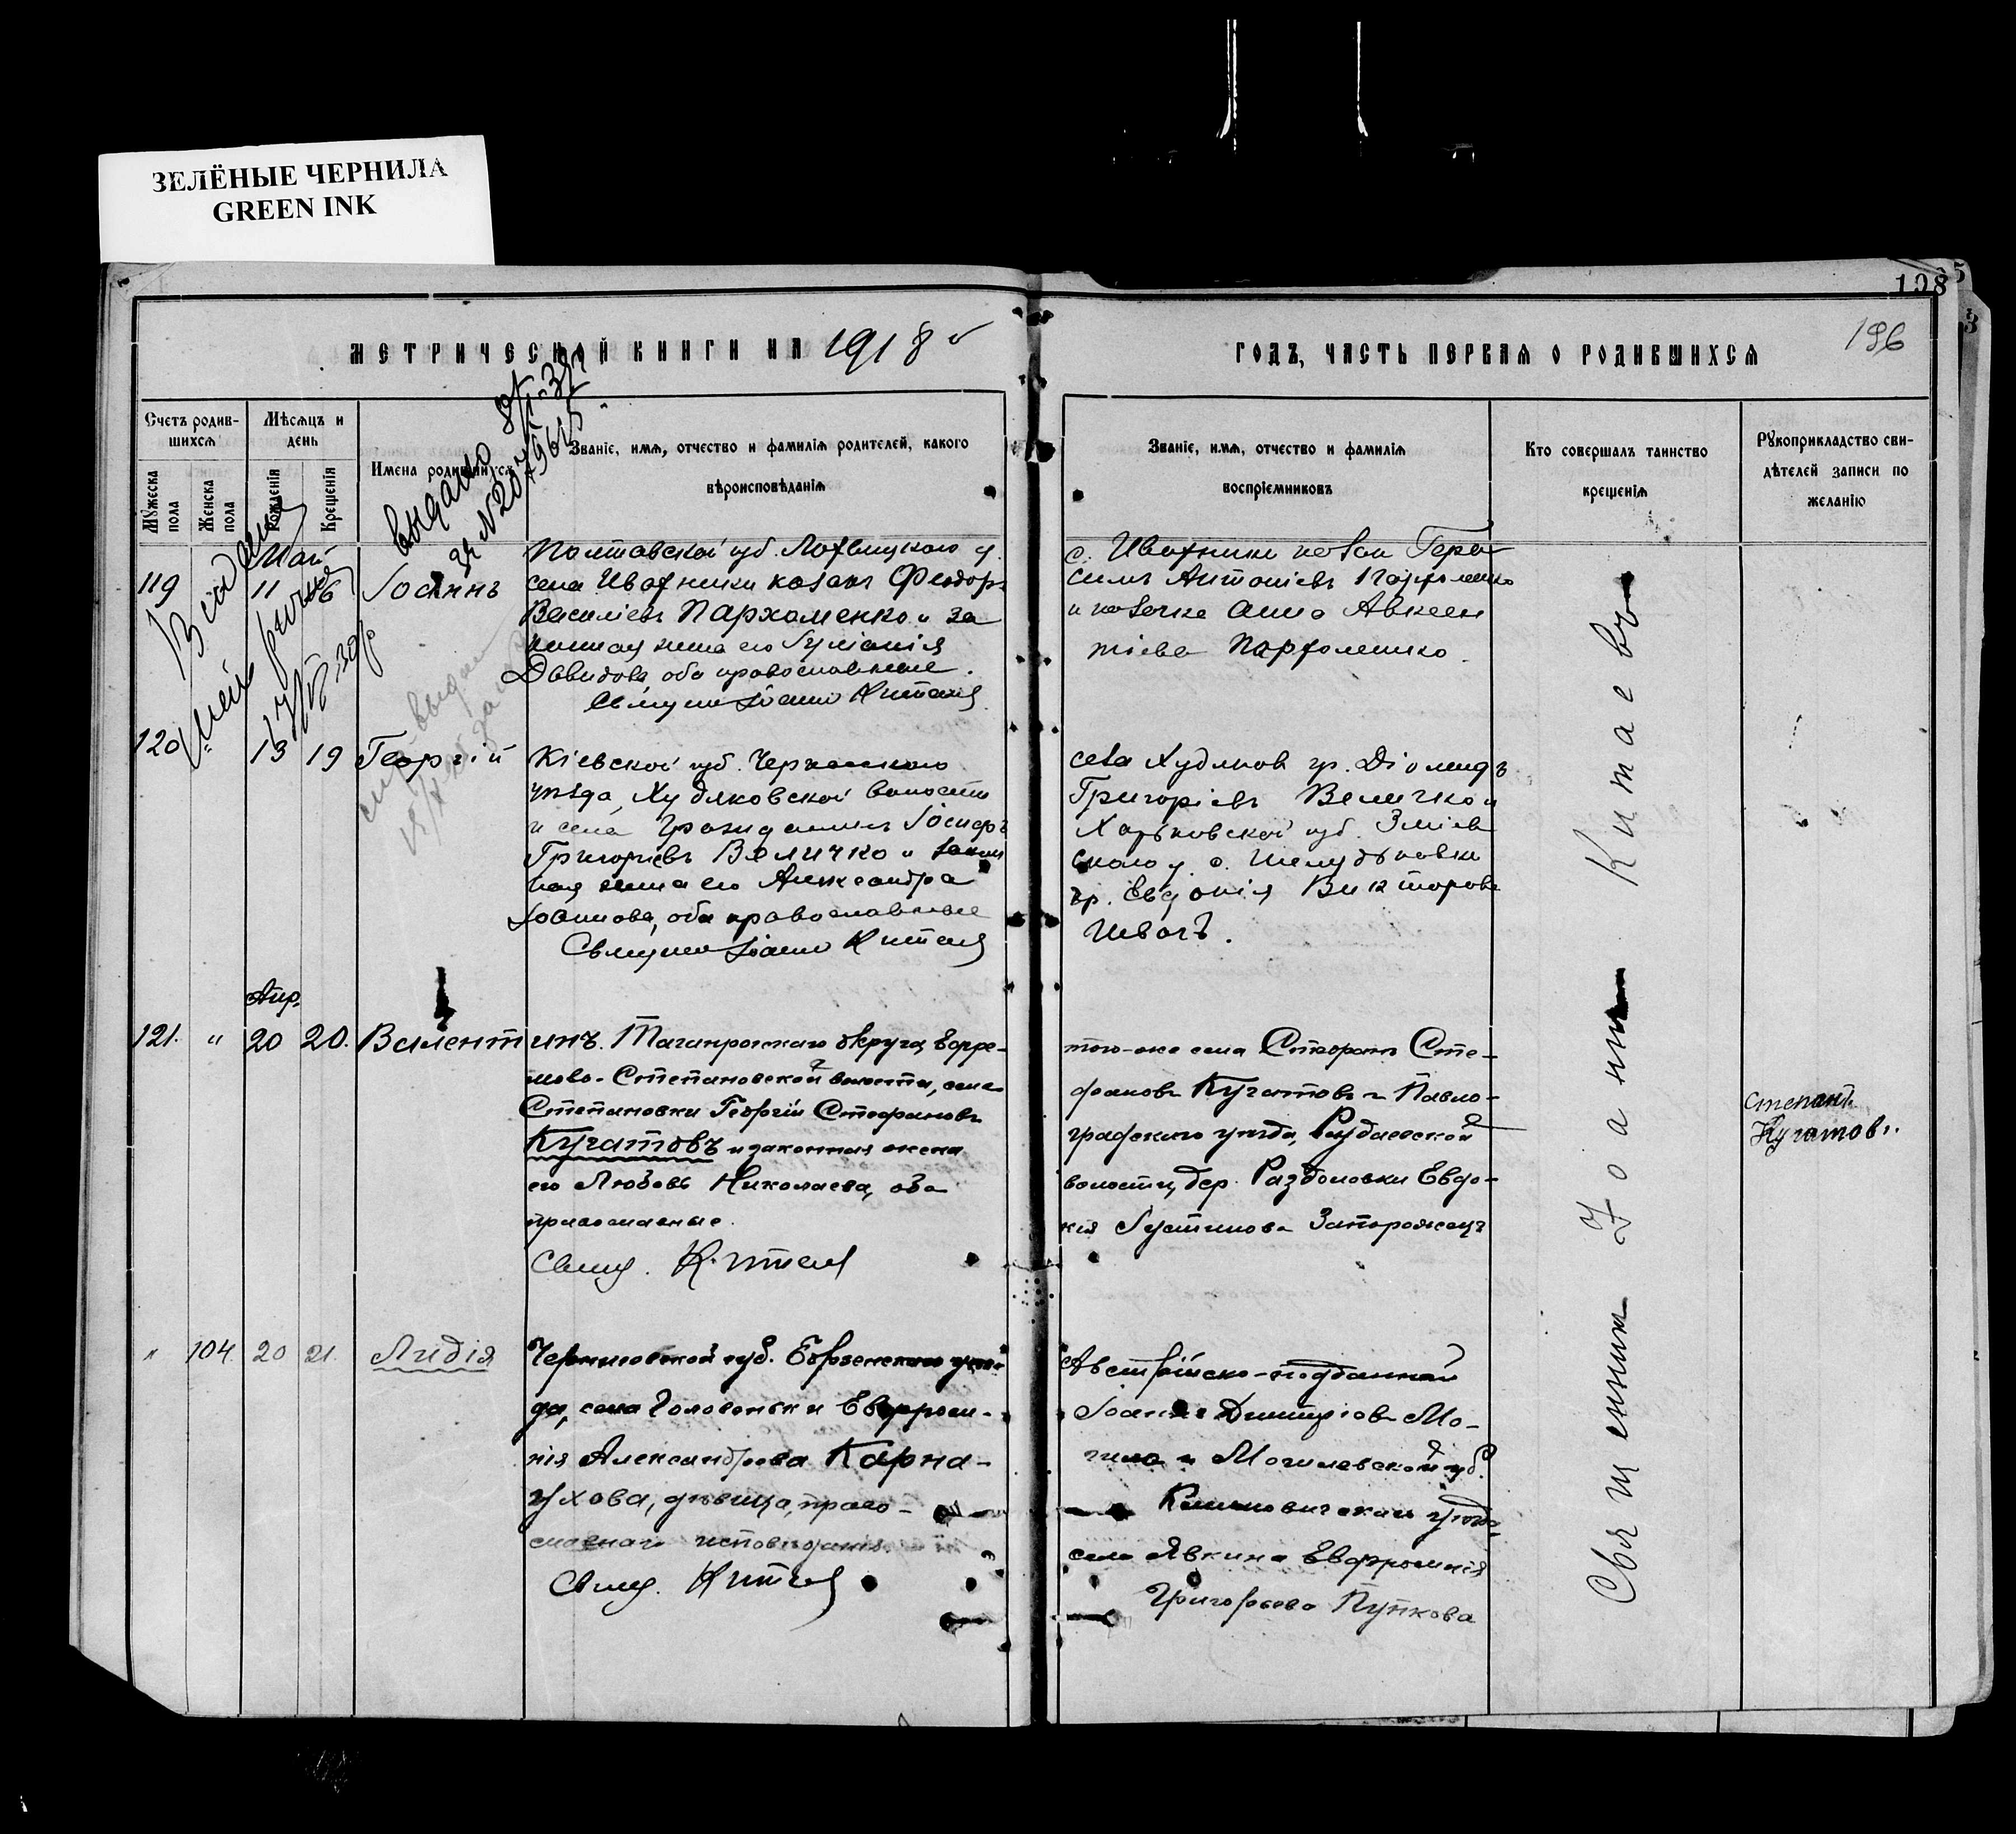 ЗЕЛЁНЫЕ ЧЕРНИЛА
GREEN INK
108
196
МЕТРИЧЕСКОЙ КНИГИ НА 1918
ГОДЪ, ЧАСТЬ ПЕРВАЯ О РОДИВШИХСЯ
Счетъ родив-
шихся
Мужеска пола
Женска пола
Мѣсяцъ и день
Рожденія
Крещенія
Имена родившихся
Званіе, имя, отчество и фамилія родителей, какого
вѣроисповѣданія
Званіе, имя, отчество и фамилія
воспріемниковъ
Кто совершалъ таинство
крещенія
Рукоприкладство сви-
дѣтелей записи по
желанію
выдано
Май
119 11 Іоаннъ
Полтавской губ. Лохвицкаго у.
села Ивахники козакъ Феодоръ
Василіевъ Пархоменко и за
конная жена его
Давидова оба православные.
Священ Іоанн Китаев
с. Ивахники козак Гера
симъ Антоніевъ Пархоменко
и козачка Анна Авксен
тіева Пархоменко.
120 13 19 Георгій
Кіевской губ. Черкасскаго
уѣзда, Худяковской волости
и села гражданинъ Іосифъ
Григоріевъ Величко и закон
ная жена его Александра
Іоаннова, оба православные
Священ Іоанн Китаев
села Худяков гр. Діомидъ
Григоріевъ Величко и
Харьковской губ. Зміев
скаго у. с. Шелудьковки
гр. Евдокія Викторова
Апр.
121. " 20 20. Валентинъ.
Таганрогскаго округа, Ефре-
мово-Степановской волости, села
Степановки Георгій Стефановъ
Кучатовъ и законная жена
его Любовь Николаева, оба
православные.
Свящ. Китаев
того-же села Стефанъ Сте-
фановъ Кучатовъ и Павло-
градскаго уѣзда,
волости, дер. Раздоловки Евдо-
кія Іустинова Запорожецъ
Степанъ
Кучатовъ.
" 104 20 21. Лидія
Черниговской губ. Борзенскаго уѣз-
да, села Головеньки Евфроси-
нія Александрова Карна-
ухова, дѣвица, право-
славнаго исповѣданія.
Свящ. Китаев
Австрійско-подданный
Іоаннъ Димитріевъ Мо-
гила и Могилевской губ.
Климовичскаго уѣзда,
села Явкина Евфросинія
Григорьева Пупкова
Священник Іоанн Китаевъ